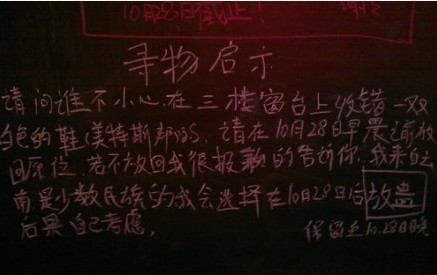 10月28日截止!
寻物启示
请问谁不小心在三楼窗台上收错一双
白色的鞋(美特斯邦威)。请在10月28日早晨之前放
回原位,若不放回我很报歉的告诉你,我来自云
南是少数民族的我会选择在10月28日后放蛊
后果自己考虑。
保留至10.28日晚